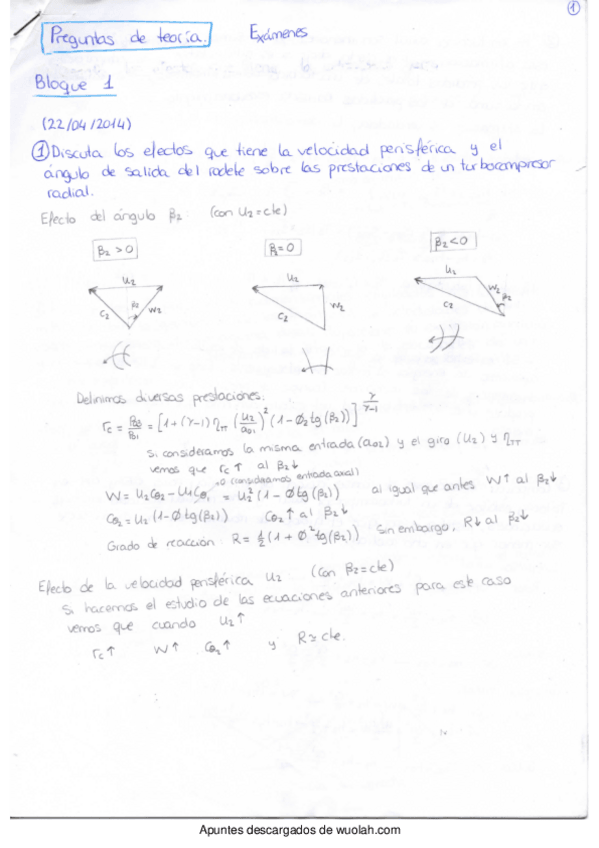 1
Preguntas de teoría. Exámenes
Bloque 1
(22/04/2014)
① Discuta los efectos que tiene la velocidad perisférica y el
ángulo de salida del rodete sobre las prestaciones de un turbocompresor
radial.
Efecto del ángulo β2: (con U2=cte)
β2 > 0 β2=0 β2<0
U2 U2 U2
C2 β2 W2 C2 W2 C2 W2 β2
Definimos diversas prestaciones:
rc = P03/P01 = [1+(γ-1) ηTT (U2/a01)² (1-Ø2 tg(β2))]^(γ/γ-1)
Si consideramos la misma entrada (a02) y el giro (U2) y ηTT
vemos que rc↑ al β2↓
0 (consideramos entrada axial)
W = U2Cθ2 - U1Cθ1 = U2²(1-Ø tg(β2)) al igual que antes W↑ al β2↓
Cθ2 = U2(1-Ø tg(β2)) Cθ2↑ al β2↓
Grado de reacción R = ½(1+Ø² tg(β2)) Sin embargo, R↓ al β2↓
Efecto de la velocidad perisférica U2 (con β2=cte)
Si hacemos el estudio de las ecuaciones anteriores para este caso
vemos que cuando U2↑
rc↑ W↑ Cθ2↑ y R≃cte.
Apuntes descargados de wuolah.com